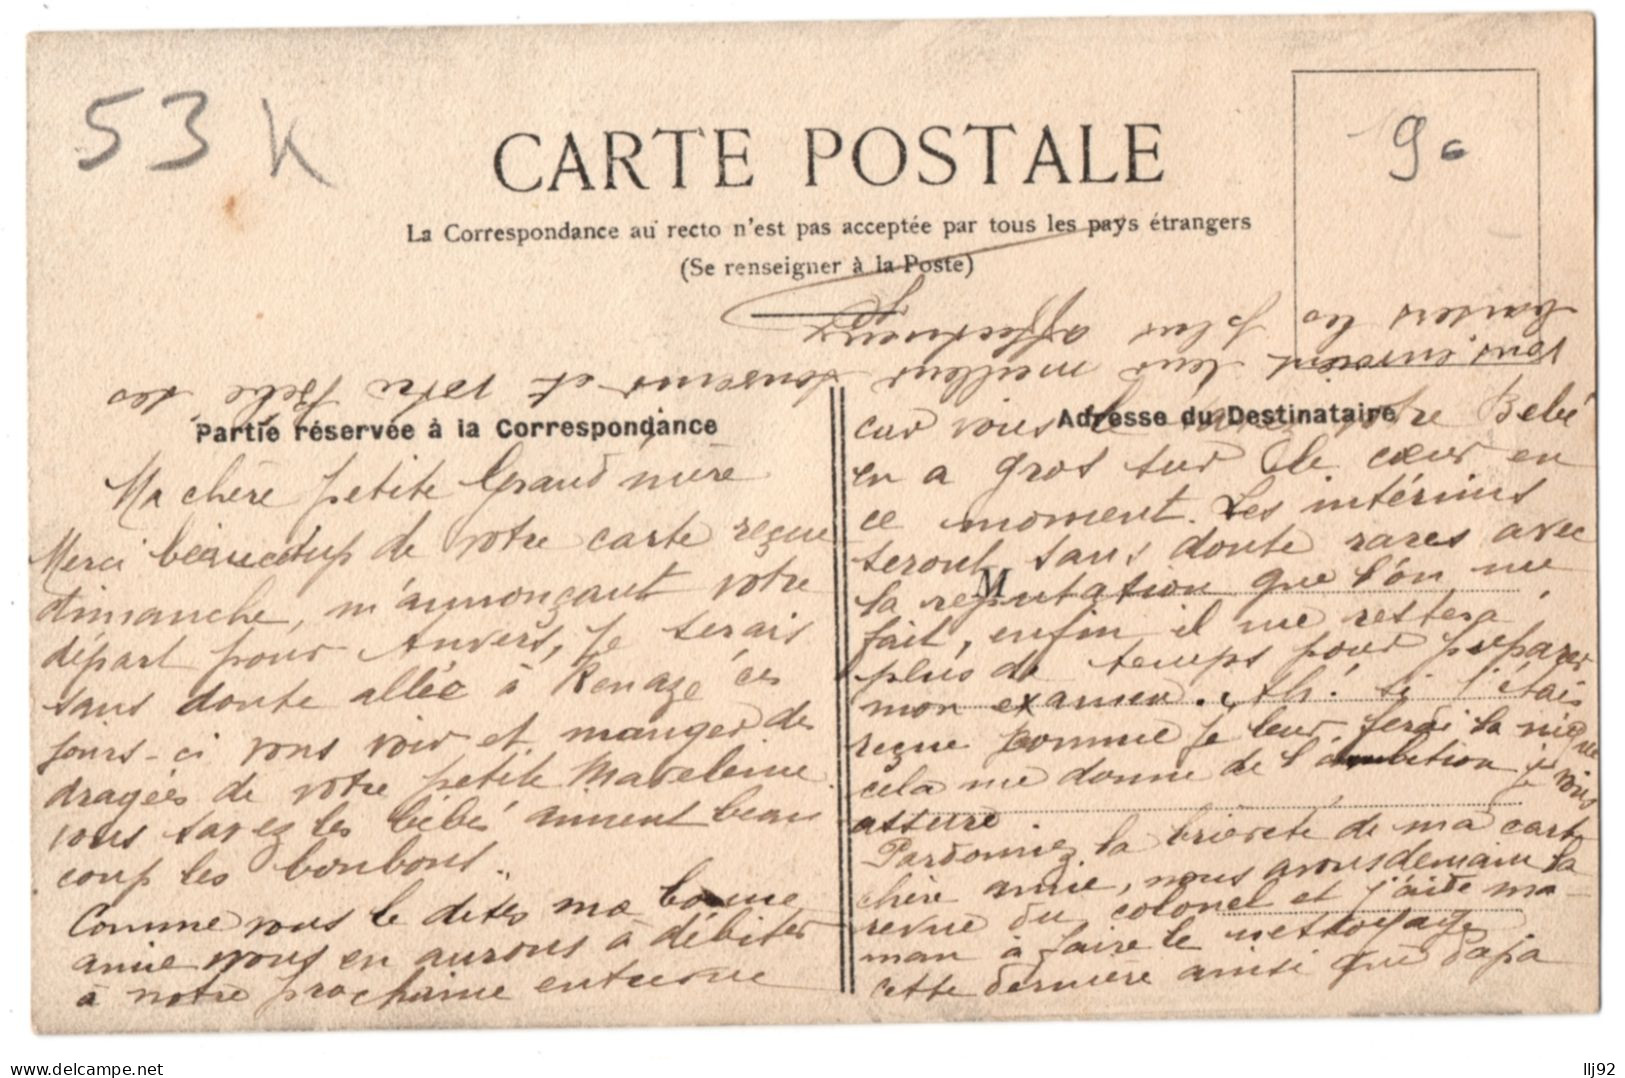 53 K
9 c
CARTE POSTALE
La Correspondance au recto n'est pas acceptée par tous les pays étrangers
(Se renseigner à la Poste)
Partie réservée à la Correspondance
Ma chère petite Grand mère
Merci beaucoup de votre carte reçue
dimanche, m'annonçant votre
départ pour Anvers, je serais
sans doute allée à Renazé ces
jours-ci vous voir et manger des
dragées de votre petite Madeleine
vous savez les bébés aiment beau
coup les bonbons..
Comme vous le dites ma bonne
amie nous en aurons à débiter
à notre prochaine entrevue
Adresse du Destinataire
M
car vous le votre Bébé
en a gros sur le cœur en
ce moment. Les intérims
seront sans doute rares avec
la reputation que l'on me
fait, enfin il me restera
plus de temps pour préparer
mon examen. Ah! si j'étais
reçue comme je leur ferai la nique
cela me donne de l'ambition je vous
assure
Pardonnez la brièveté de ma carte
chère amie, nous avons demain la
revue du colonel et j'aide ma-
man à faire le nettoyage
cette dernière ainsi que papa
se et votre Bébé les
vous envoient leur meilleur
baisers les plus affectueux
llj92